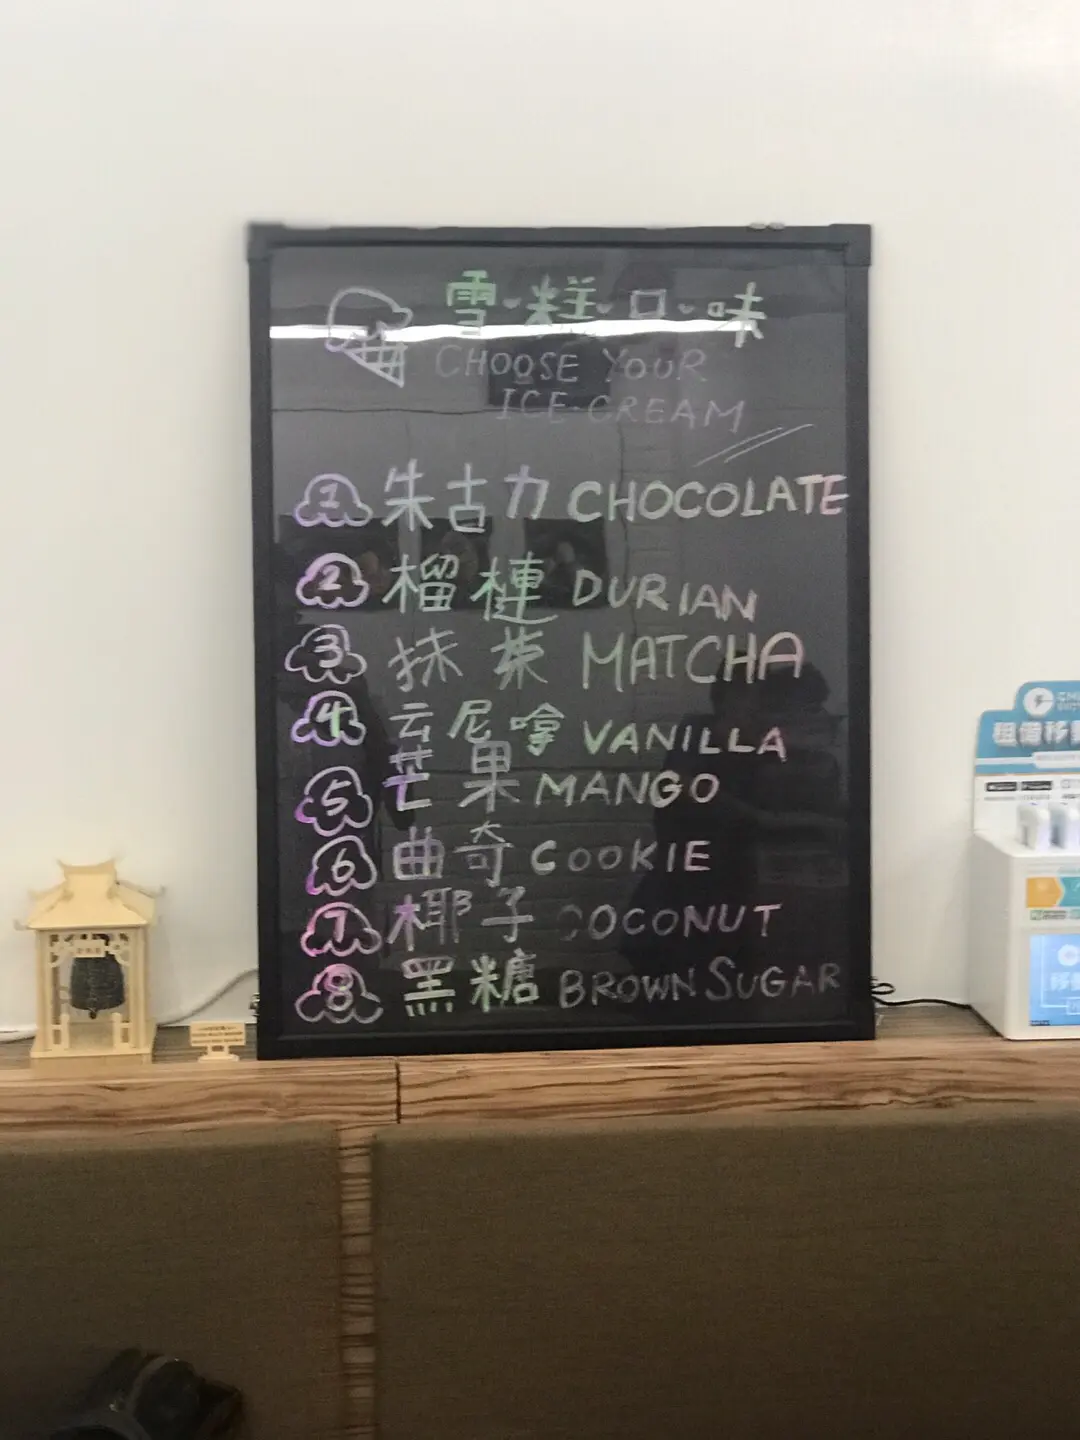 雪糕口味
CHOOSE YOUR
ICE-CREAM
1 朱古力 CHOCOLATE
2 榴槤 DURIAN
3 抹茶 MATCHA
4 云尼嗱 VANILLA
5 芒果 MANGO
6 曲奇 COOKIE
7 椰子 COCONUT
8 黑糖 BROWN SUGAR
租借移動